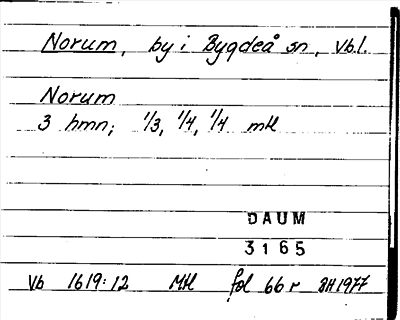 Norum, by i Bygdeå sn, Vb.l.
Norum
3 hmn; 1/3, 1/4, 1/4 mtl
DAUM
3165
Vb 1619:12 Mtl fol 66 r BH 1977